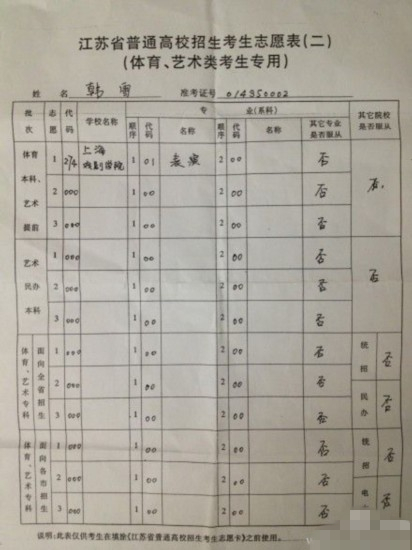 江苏省普通高校招生考生志愿表(二)
(体育、艺术类考生专用)
姓 名 韩雪 准考证号 014350002
批次 志愿 代码 学校名称 专业(系科) 其它专业是否服从 其它院校是否服从
顺序 代码 名称 顺序 代码 名称
体育本科、艺术提前 1 上海戏剧学院 1 01 表演 2 00 否 否
2 000 1 00 2 00 否
3 000 1 00 2 00 否
艺术民办本科 1 000 1 00 2 00 否 否
2 000 1 00 2 00 否
3 000 1 00 2 00 否
体育、艺术专科 面向全省招生 1 000 1 00 2 00 否 统招 否
2 000 1 00 2 00 否
3 000 1 00 2 00 否 民办 否
体育、艺术专科 面向各市招生 1 000 1 00 2 00 否 统招 否
2 000 1 00 2 00 否
3 000 1 00 2 00 否 电 否
说明:此表仅供考生在填涂《江苏省普通高校招生考生志愿卡》之前使用。